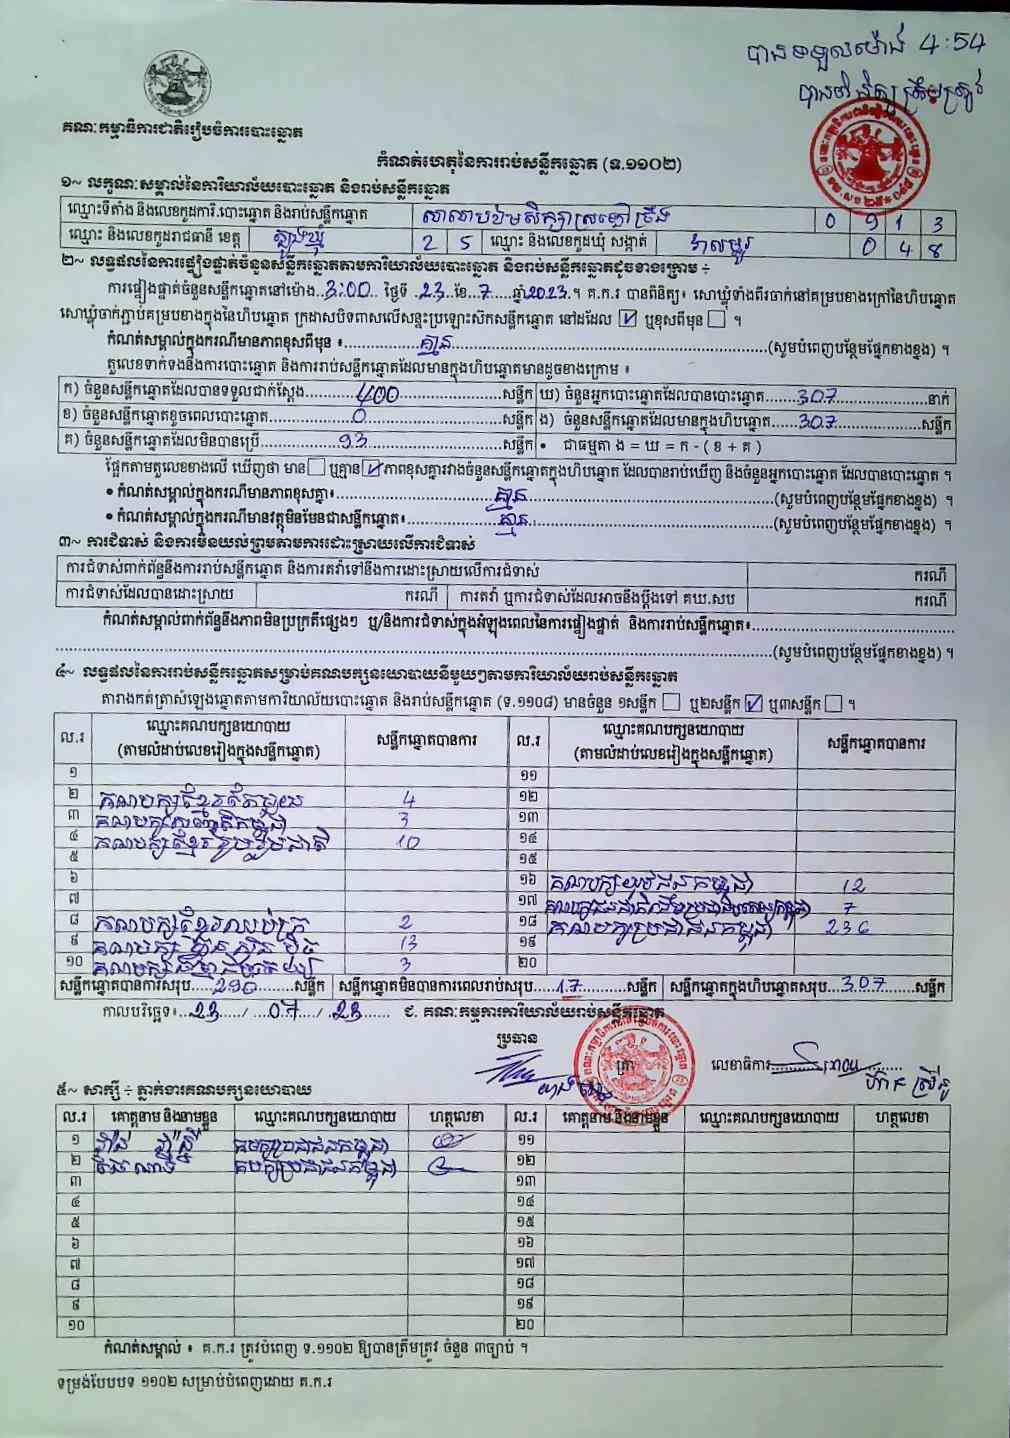 បានទទួលម៉ោង 4:54
បានពិនិត្យត្រឹមត្រូវ
គណៈកម្មាធិការជាតិរៀបចំការបោះឆ្នោត
កំណត់ហេតុនៃការរាប់សន្លឹកឆ្នោត (ទ.១១០២)
១~ លក្ខណៈសម្គាល់នៃការិយាល័យបោះឆ្នោត និងរាប់សន្លឹកឆ្នោត
ឈ្មោះទីតាំង និងលេខកូដការិ.បោះឆ្នោត និងរាប់សន្លឹកឆ្នោត 0 9 1 3
ឈ្មោះ និងលេខកូដរាជធានី ខេត្ត ត្បូងឃ្មុំ 2 5 ឈ្មោះ និងលេខកូដឃុំ សង្កាត់ 0 4 8
២~ លទ្ធផលនៃការផ្ទៀងផ្ទាត់ចំនួនសន្លឹកឆ្នោតតាមការិយាល័យបោះឆ្នោត និងរាប់សន្លឹកឆ្នោតដូចខាងក្រោម ÷
ការផ្ទៀងផ្ទាត់ចំនួនសន្លឹកឆ្នោតនៅម៉ោង..3:00.. ថ្ងៃទី ..23..ខែ..7.....ឆ្នាំ2023.។ គ.ក.រ បានពិនិត្យ៖ សោឃ្លុំទាំងពីរចាក់នៅគម្របខាងក្រៅនៃហិបឆ្នោត
សោឃ្លុំចាក់ភ្ជាប់គម្របខាងក្នុងនៃហិបឆ្នោត ក្រដាសបិទពាសលើសន្ទះប្រឡោះស៊កសន្លឹកឆ្នោត នៅដដែល ☑ ឬខុសពីមុន ☐ ។
កំណត់សម្គាល់ក្នុងករណីមានភាពខុសពីមុន ៖ គ្មាន (សូមបំពេញបន្ថែមផ្នែកខាងខ្នង) ។
តួលេខទាក់ទងនឹងការបោះឆ្នោត និងការរាប់សន្លឹកឆ្នោតដែលមានក្នុងហិបឆ្នោតមានដូចខាងក្រោម ៖
ក) ចំនួនសន្លឹកឆ្នោតដែលបានទទួលជាក់ស្តែង 400 សន្លឹក ឃ) ចំនួនអ្នកបោះឆ្នោតដែលបានបោះឆ្នោត 307 នាក់
ខ) ចំនួនសន្លឹកឆ្នោតខូចពេលបោះឆ្នោត 0 សន្លឹក ង) ចំនួនសន្លឹកឆ្នោតដែលមានក្នុងហិបឆ្នោត 307 សន្លឹក
គ) ចំនួនសន្លឹកឆ្នោតដែលមិនបានប្រើ 93 សន្លឹក • ជាធម្មតា ង = ឃ = ក - ( ខ + គ )
ផ្អែកតាមតួលេខខាងលើ ឃើញថា មាន☐ ឬគ្មាន☑ភាពខុសគ្នារវាងចំនួនសន្លឹកឆ្នោតក្នុងហិបឆ្នោត ដែលបានរាប់ឃើញ និងចំនួនអ្នកបោះឆ្នោត ដែលបានបោះឆ្នោត ។
• កំណត់សម្គាល់ក្នុងករណីមានភាពខុសគ្នា៖ គ្មាន (សូមបំពេញបន្ថែមផ្នែកខាងខ្នង) ។
• កំណត់សម្គាល់ក្នុងករណីមានវត្ថុមិនមែនជាសន្លឹកឆ្នោត៖ គ្មាន (សូមបំពេញបន្ថែមផ្នែកខាងខ្នង) ។
៣~ ការជំទាស់ និងការមិនយល់ព្រមតាមការដោះស្រាយលើការជំទាស់
ការជំទាស់ពាក់ព័ន្ធនឹងការរាប់សន្លឹកឆ្នោត និងការតវ៉ាទៅនឹងការដោះស្រាយលើការជំទាស់ ករណី
ការជំទាស់ដែលបានដោះស្រាយ ករណី ការតវ៉ា ឬការជំទាស់ដែលអាចនឹងប្តឹងទៅ គឃ.សប ករណី
កំណត់សម្គាល់ពាក់ព័ន្ធនឹងភាពមិនប្រក្រតីផ្សេងៗ ឬ/និងការជំទាស់ក្នុងអំឡុងពេលនៃការផ្ទៀងផ្ទាត់ និងការរាប់សន្លឹកឆ្នោត៖
(សូមបំពេញបន្ថែមផ្នែកខាងខ្នង) ។
៤~ លទ្ធផលនៃការរាប់សន្លឹកឆ្នោតសម្រាប់គណបក្សនយោបាយនីមួយៗតាមការិយាល័យរាប់សន្លឹកឆ្នោត
តារាងកត់ត្រាសំឡេងឆ្នោតតាមការិយាល័យបោះឆ្នោត និងរាប់សន្លឹកឆ្នោត (ទ.១១០៨) មានចំនួន ១សន្លឹក ☐ ឬ២សន្លឹក ☑ ឬ៣សន្លឹក ☐ ។
ល.រ ឈ្មោះគណបក្សនយោបាយ (តាមលំដាប់លេខរៀងក្នុងសន្លឹកឆ្នោត) សន្លឹកឆ្នោតបានការ ល.រ ឈ្មោះគណបក្សនយោបាយ (តាមលំដាប់លេខរៀងក្នុងសន្លឹកឆ្នោត) សន្លឹកឆ្នោតបានការ
១ ១១
២ គណបក្សខ្មែរតែមួយ 4 ១២
៣ គណបក្ស 3 ១៣
៤ គណបក្សខ្មែររួបរួមជាតិ 10 ១៤
៥ ១៥
៦ ១៦ គណបក្សយុវជនកម្ពុជា 12
៧ ១៧ 7
៨ គណបក្សខ្មែរឈប់ក្រ 2 ១៨ គណបក្សប្រជាជនកម្ពុជា 236
៩ គណបក្ស ហ្វ៊ុនស៊ិនប៉ិច 13 ១៩
១០ គណបក្ស 3 ២០
សន្លឹកឆ្នោតបានការសរុប.....290.......សន្លឹក សន្លឹកឆ្នោតមិនបានការពេលរាប់សរុប.....17.......សន្លឹក សន្លឹកឆ្នោតក្នុងហិបឆ្នោតសរុប...307.......សន្លឹក
កាលបរិច្ឆេទ៖...23...../....07..../..23...... ជ. គណៈកម្មការការិយាល័យរាប់សន្លឹកឆ្នោត
ប្រធាន
ត្រា លេខាធិការ
៥~ សាក្សី ÷ ភ្នាក់ងារគណបក្សនយោបាយ
ល.រ គោត្តនាម និងនាមខ្លួន ឈ្មោះគណបក្សនយោបាយ ហត្ថលេខា ល.រ គោត្តនាម និងនាមខ្លួន ឈ្មោះគណបក្សនយោបាយ ហត្ថលេខា
១ គបក្សប្រជាជនកម្ពុជា ១១
២ គបក្សប្រជាជនកម្ពុជា ១២
៣ ១៣
៤ ១៤
៥ ១៥
៦ ១៦
៧ ១៧
៨ ១៨
៩ ១៩
១០ ២០
កំណត់សម្គាល់ ៖ គ.ក.រ ត្រូវបំពេញ ទ.១១០២ ឱ្យបានត្រឹមត្រូវ ចំនួន ៣ច្បាប់ ។
ទម្រង់បែបបទ ១១០២ សម្រាប់បំពេញដោយ គ.ក.រ